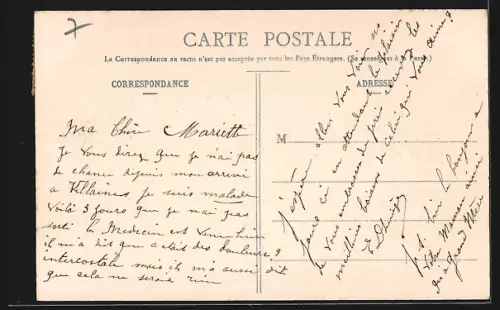 CARTE POSTALE
La Correspondance au recto n'est pas acceptée par tous les Pays Étrangers. (Se renseigner à la Poste.)
CORRESPONDANCE
ADRESSE
M
Ma Chère Mariett
Je vous direz que je n'ai pas
de chance depuis mon arrivé
a Villaines je suis malade
Voilà 3 jours que je n'ai pas
sorti le Medecin est venu hier
il m'a dit que c'etait des douleurs
intercostale mais il m'a aussi dit
que cela ne serait rien
J'espère aller vous voir
jours ci en attendant le plaisir
de vous embrasser de près recevez les
meilleurs baisers de celui qui vous aime
P.S. bien le bonjour a
votre Maman ainsi